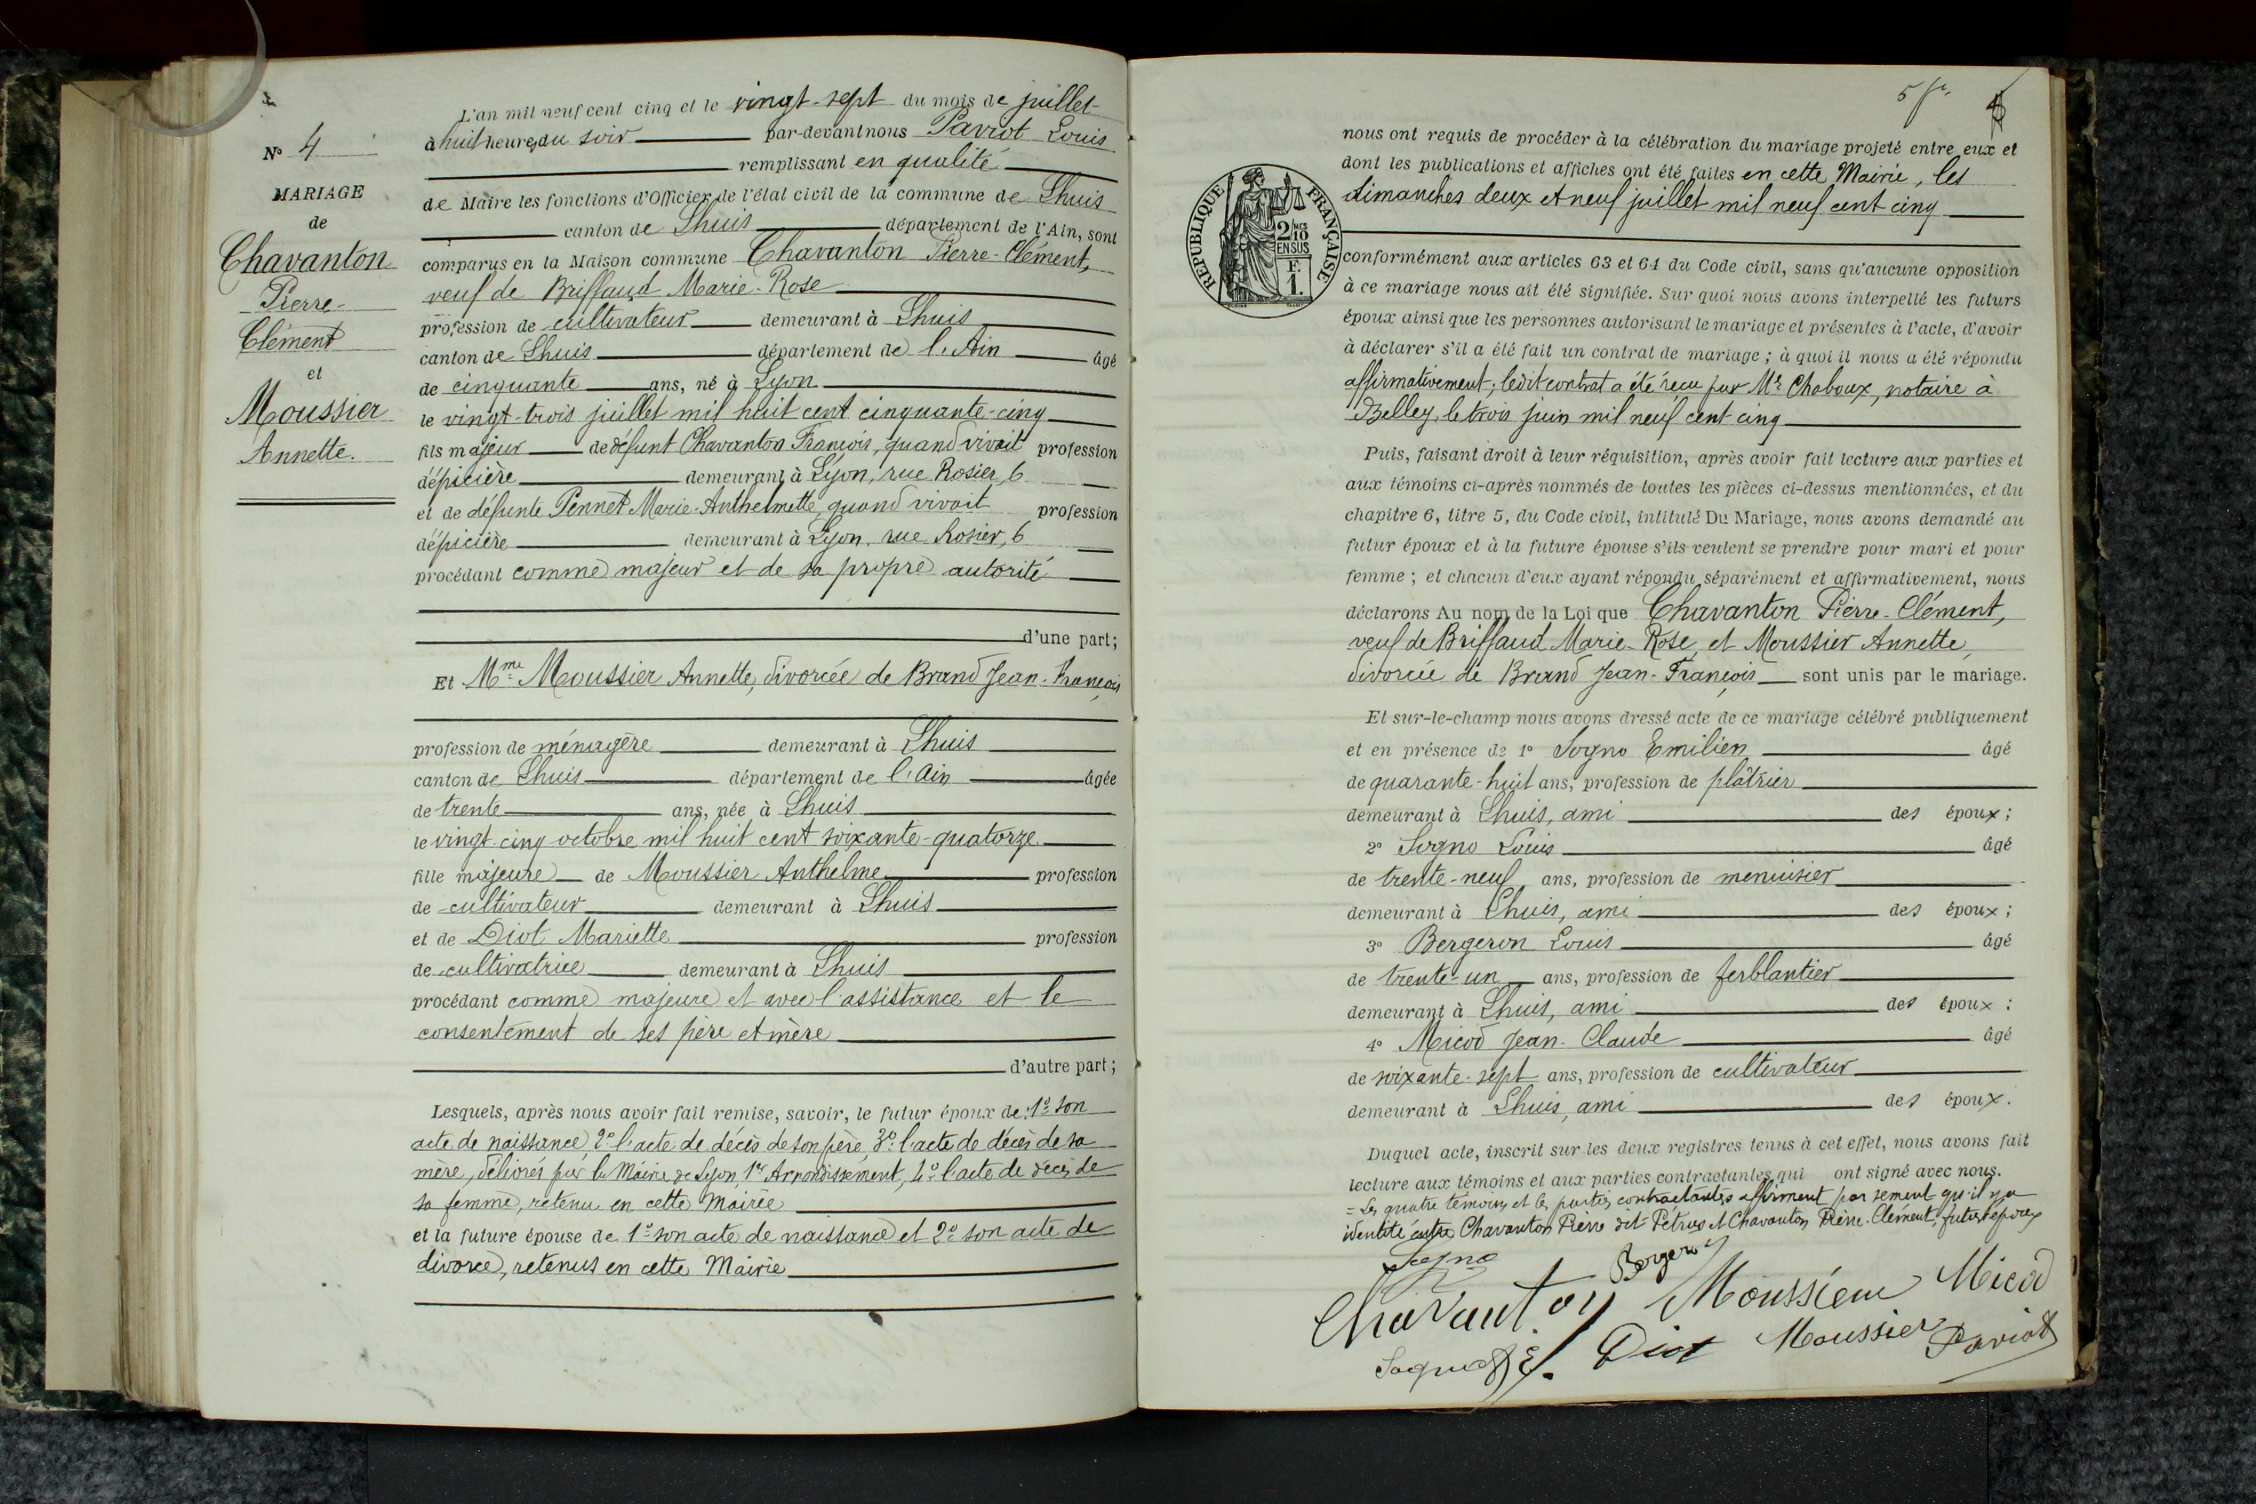 N° 4
MARIAGE
de
Chavanton
Pierre-
Clément
et
Moussier
Annette.
L'an mil neuf cent cinq et le vingt-sept du mois de juillet
à huit heures du soir par-devant nous Paviot Louis
remplissant en qualité
de Maire les fonctions d'Officier de l'état civil de la commune de Lhuis
canton de Lhuis département de l'Ain, sont
comparus en la Maison commune Chavanton Pierre-Clément,
veuf de Briffaud Marie-Rose
profession de cultivateur demeurant à Lhuis
canton de Lhuis département de l'Ain âgé
de cinquante ans, né à Lyon
le vingt-trois juillet mil huit cent cinquante-cinq
fils majeur de défunt Chavanton François, quand vivait profession
d'épicière demeurant à Lyon, rue Rosier, 6
et de défunte Pennet Marie-Anthelmette, quand vivait profession
d'épicière demeurant à Lyon, rue Rosier, 6
procédant comme majeur et de sa propre autorité
d'une part;
Et Mme Moussier Annette, divorcée de Brand Jean-François
profession de ménagère demeurant à Lhuis
canton de Lhuis département de l'Ain âgée
de trente ans, née à Lhuis
le vingt-cinq octobre mil huit cent soixante-quatorze
fille majeure de Moussier Anthelme profession
de cultivateur demeurant à Lhuis
et de Diot Mariette profession
de cultivatrice demeurant à Lhuis
procédant comme majeure et avec l'assistance et le
consentement de ses père et mère
d'autre part;
Lesquels, après nous avoir fait remise, savoir, le futur époux de: 1° son
acte de naissance 2° l'acte de décès de son père, 3° l'acte de décès de sa
mère, délivrés par la Mairie de Lyon, 1er Arrondissement, 4° l'acte de décès de
sa femme, retenu en cette Mairie
et la future épouse de 1° son acte de naissance et 2° son acte de
divorce, retenus en cette Mairie
5 fr.
RÉPUBLIQUE FRANÇAISE
2/10 MES
EN SUS
F.
1.
nous ont requis de procéder à la célébration du mariage projeté entre eux et
dont les publications et affiches ont été faites en cette Mairie, les
dimanches deux et neuf juillet mil neuf cent cinq
conformément aux articles 63 et 64 du Code civil, sans qu'aucune opposition
à ce mariage nous ait été signifiée. Sur quoi nous avons interpellé les futurs
époux ainsi que les personnes autorisant le mariage et présentes à l'acte, d'avoir
à déclarer s'il a été fait un contrat de mariage; à quoi il nous a été répondu
affirmativement; ledit contrat a été reçu par Me Chaboux, notaire à
Belley, le trois juin mil neuf cent cinq
Puis, faisant droit à leur réquisition, après avoir fait lecture aux parties et
aux témoins ci-après nommés de toutes les pièces ci-dessus mentionnées, et du
chapitre 6, titre 5, du Code civil, intitulé Du Mariage, nous avons demandé au
futur époux et à la future épouse s'ils veulent se prendre pour mari et pour
femme; et chacun d'eux ayant répondu séparément et affirmativement, nous
déclarons Au nom de la Loi que Chavanton Pierre-Clément,
veuf de Briffaud Marie-Rose, et Moussier Annette,
divorcée de Brand Jean-François sont unis par le mariage.
Et sur-le-champ nous avons dressé acte de ce mariage célébré publiquement
et en présence de 1° Sogno Emilien âgé
de quarante-huit ans, profession de plâtrier
demeurant à Lhuis, ami des époux;
2° Sogno Louis âgé
de trente-neuf ans, profession de menuisier
demeurant à Lhuis, ami des époux;
3° Bergeron Louis âgé
de trente-un ans, profession de ferblantier
demeurant à Lhuis, ami des époux:
4° Micod Jean-Claude âgé
de soixante-sept ans, profession de cultivateur
demeurant à Lhuis, ami des époux.
Duquel acte, inscrit sur les deux registres tenus à cet effet, nous avons fait
lecture aux témoins et aux parties contractantes qui ont signé avec nous.
= Les quatre témoins et les parties contractantes affirment par serment qu'il y a
identité entre Chavanton Pierre dit Pétrus et Chavanton Pierre-Clément, futur époux
Sogno Bergeron
Chavanton Moussier Micod
Sogno E. Diot Moussier Paviot